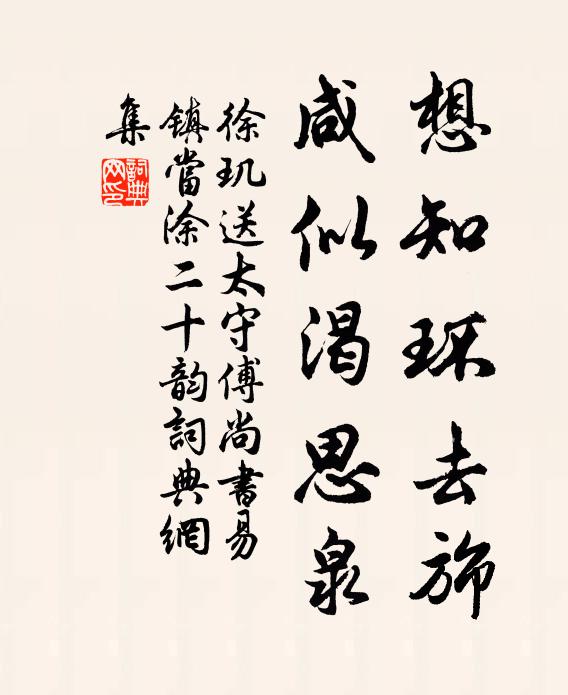 想知环去斾
咸似渴思泉
徐玑送太守傅尚書易
镇當涂二十韵詞典網
集
詞典
网印